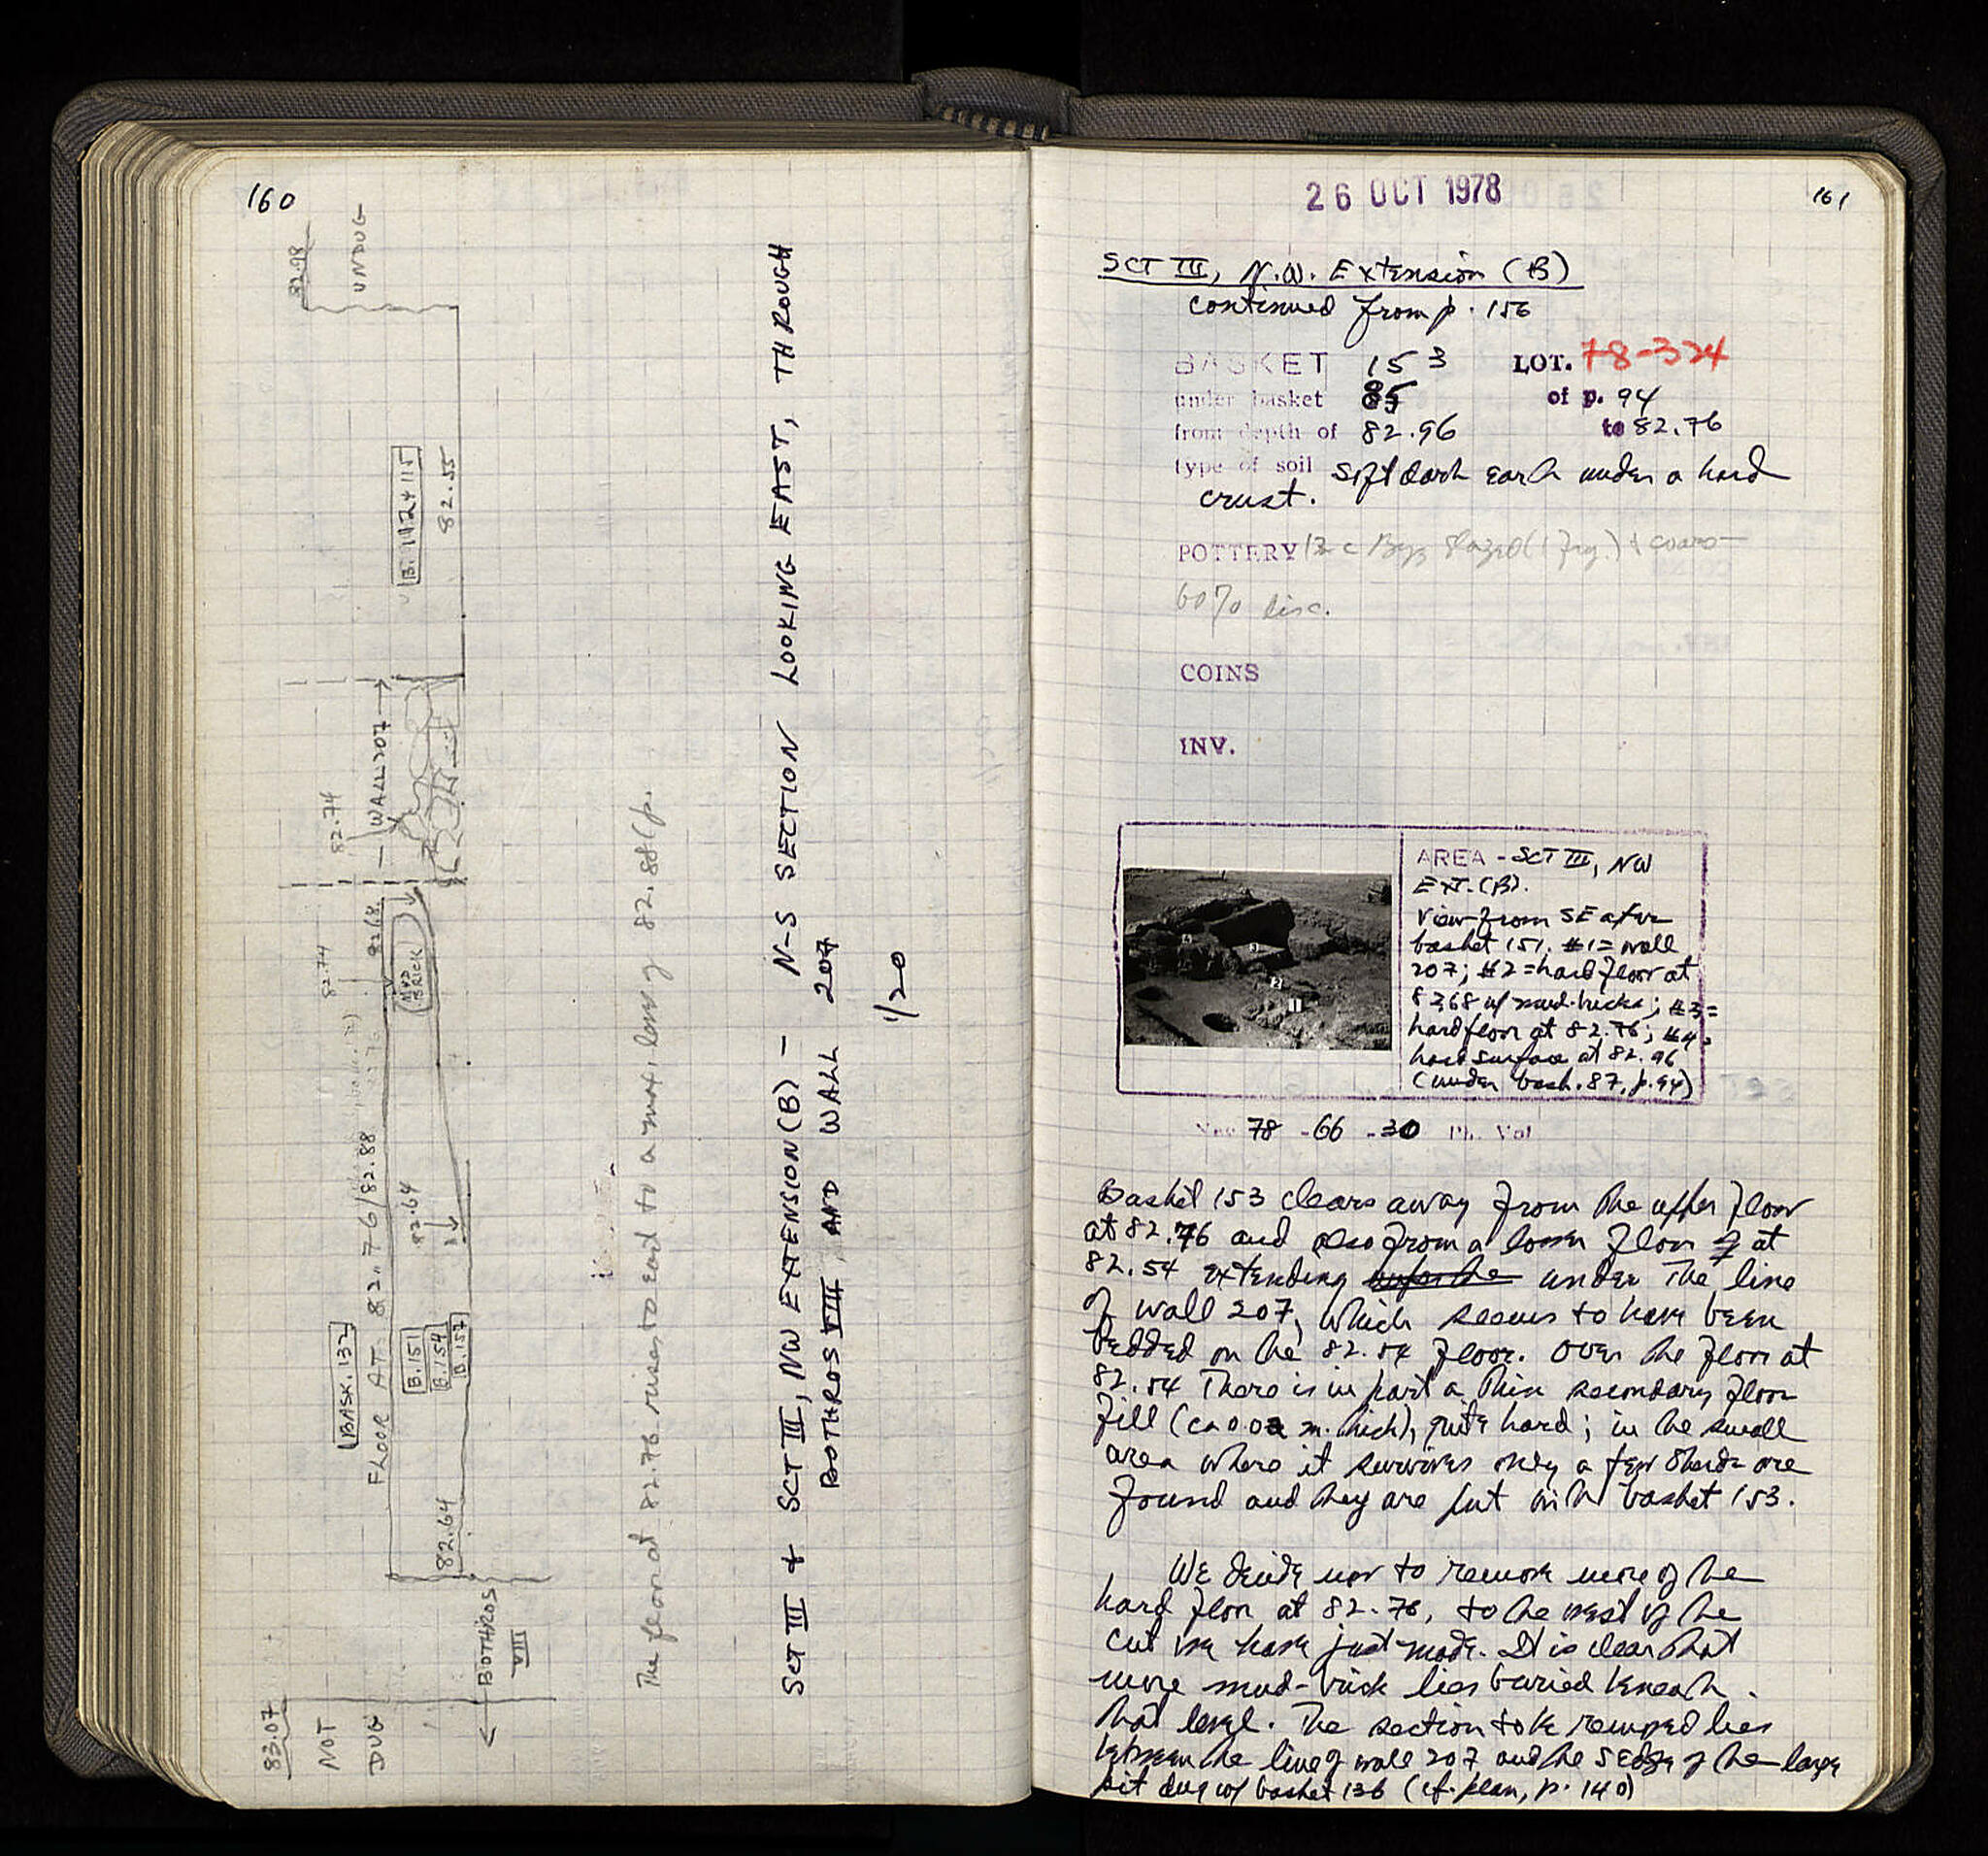 160
82.98
UNDUG
B. 112+115
82.55
82.74
WALL 207
82.74
82.68
MUD
BRICK
BASK. 132
FLOOR AT 82.76/82.88
82.64
B.151
B.154
B.157
82.64
BOTHROS
VIII
83.07
NOT
DUG
The floor at 82.76 rises to east to a max. level of 82.88
SCT III + SCT III, NW EXTENSION (B) – N-S SECTION LOOKING EAST, THROUGH
BOTHROS VIII AND WALL 207
1/20
26 OCT 1978
161
SCT III, N.W. Extension (B)
continued from p. 156
BASKET 153 LOT. 78-324
under basket of p. 94
from depth of 82.96 to 82.76
type of soil Soft dark earth under a hard
crust.
POTTERY 12 c Byz glazed (1 frg.) + coarse
60% disc.
COINS
INV.
AREA - SCT III, NW
EXT. (B).
View from SE after
basket 151. #1 = wall
207; #2 = hard floor at
8268 w/ mud-bricks; #3 =
hard floor at 82.76; #4 =
hard surface at 82.96
(under bask. 87, p. 94)
Neg 78 - 66 - 30 Ph. Vol
Basket 153 clears away from the upper floor
at 82.76 and also from a lower floor at
82.54 extending under the line
of wall 207, which seems to have been
bedded on the 82.54 floor. Over the floor at
82.54 There is in part a thin secondary floor
fill (ca 0.02 m. thick), quite hard; in the small
area where it survives only a few sherds are
found and they are put with basket 153.
We decide now to remove more of the
hard floor at 82.76, to the west of the
cut we have just made. It is clear that
more mud-brick lies buried beneath
that level. The section to be removed lies
between the line of wall 207 and the S edge of the large
pit dug w/ basket 136 (cf. plan, p. 140)